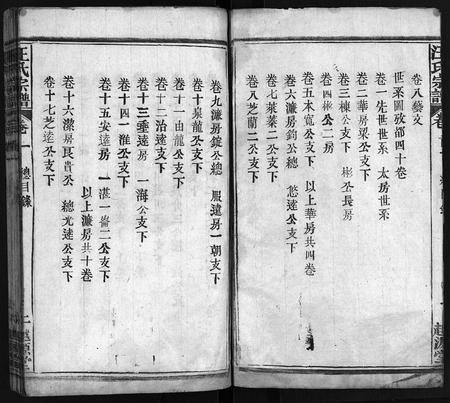 汪氏宗譜
卷八藝文
世系圖攷部四十卷
卷一先世世系 太房世系
卷二華房梁公支下
卷三棟公支下 彬公長房
卷四極公二房
卷五本寬公支下 以上華房共四卷
卷六濂房鈞公總 悠達公支下
卷七萊菉二公支下
卷八芝蘭二公支下
越源堂
卷九濂房錠公總 服遠房一朝支下
卷十泉龍公支下
卷十一由龍公支下
卷十二治達支下
卷十三垂達房 一海公支下
卷十四一淮公支下
卷十五安達房 一湛一崙二公支下
以上濂房共十卷
卷十六潔房民貴公 總光達公支下
卷十七芝達公支下
汪氏宗譜 卷一 總目錄 二 越源堂